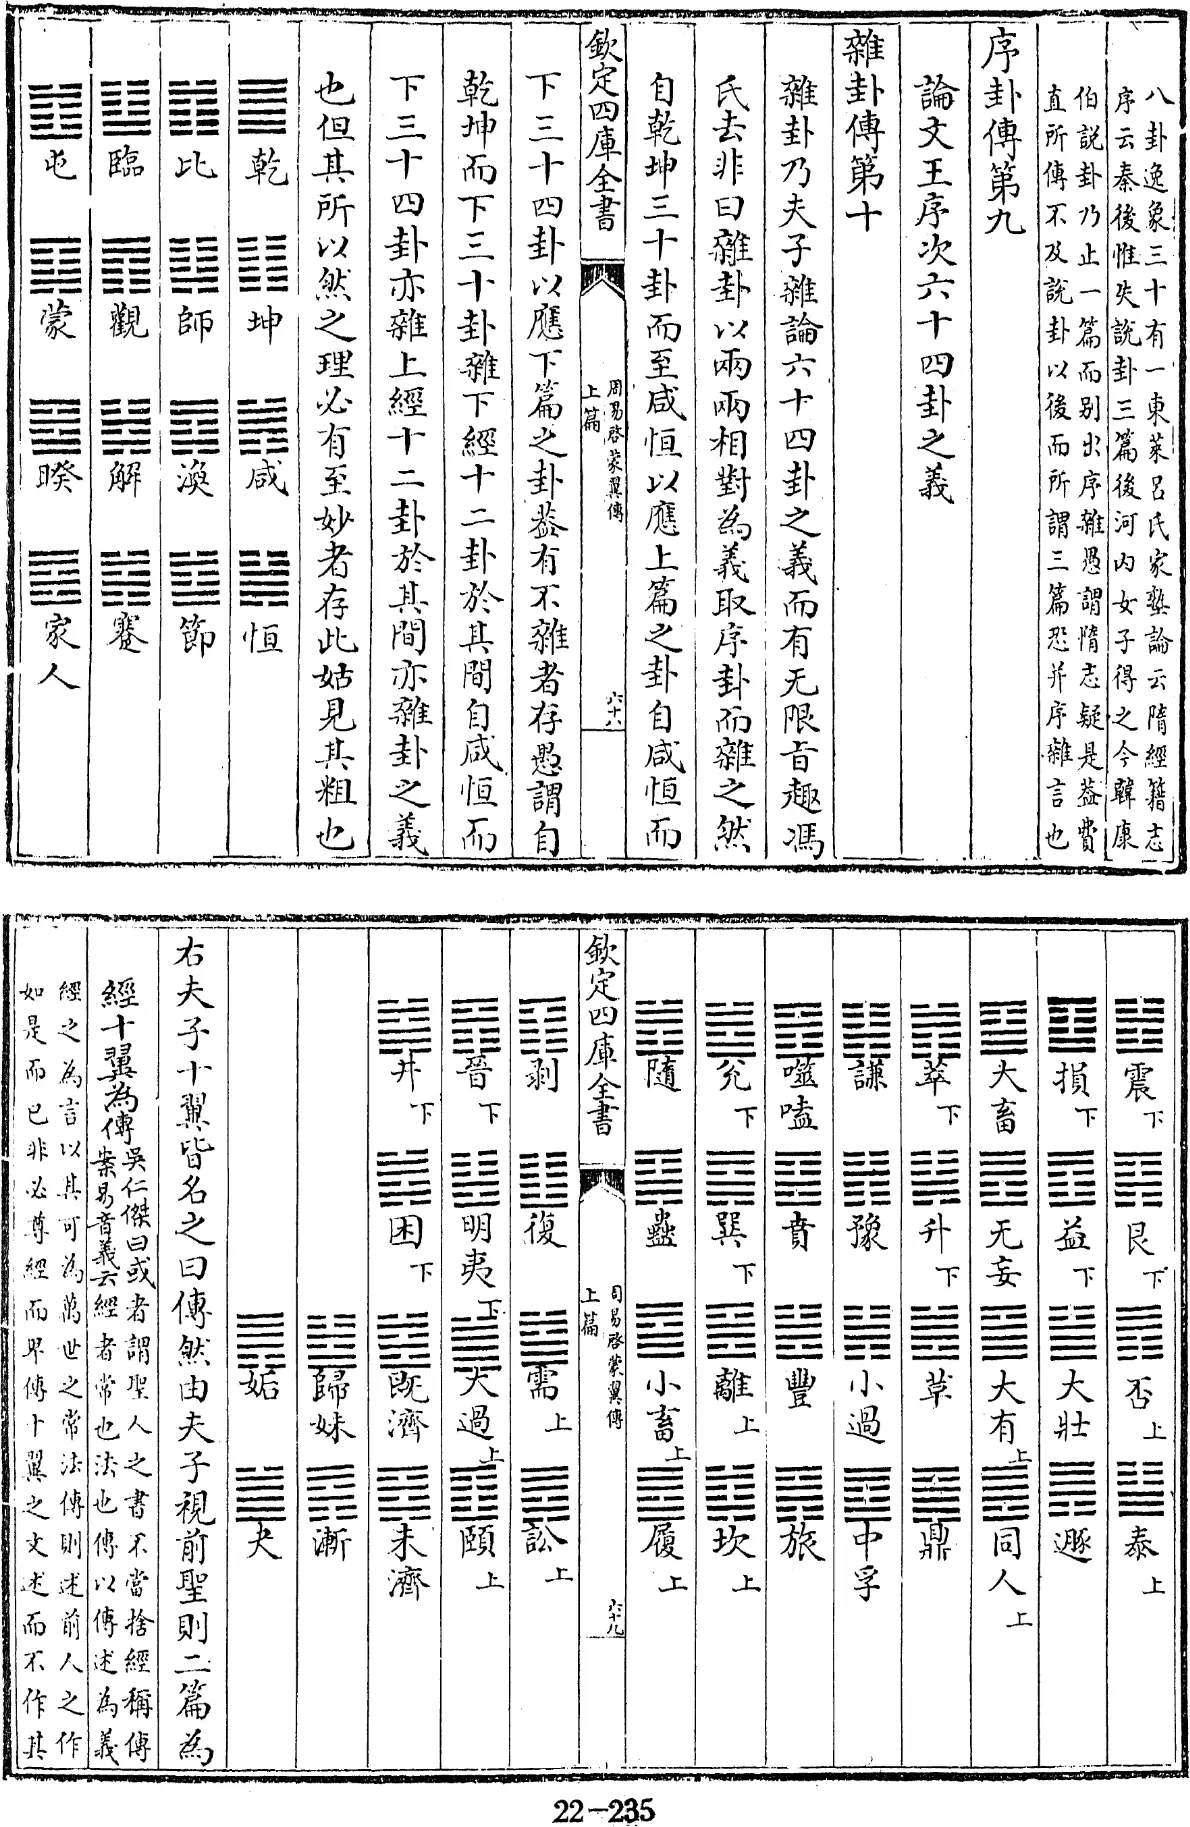 八卦逸象三十有一東萊呂氏家塾論云隋經籍志
序云秦後惟失說卦三篇後河內女子得之今韓康
伯說卦乃止一篇而别出序雜愚謂隋志疑是葢費
直所傳不及說卦以後而所謂三篇恐并序雜言也
序卦傳第九
論文王序次六十四卦之義
雜卦傳第十
雜卦乃夫子雜論六十四卦之義而有无限旨趣馮
氏去非曰雜卦以兩兩相對為義取序卦而雜之然
自乾坤三十卦而至咸恒以應上篇之卦自咸恒而
欽定四庫全書
周易啓蒙翼傳
上篇
六十八
下三十四卦以應下篇之卦葢有不雜者存愚謂自
乾坤而下三十卦雜下經十二卦於其間自咸恒而
下三十四卦亦雜上經十二卦於其間亦雜卦之義
也但其所以然之理必有至妙者存此姑見其粗也
乾 坤 咸 恒
比 師 渙 節
臨 觀 解 蹇
屯 蒙 睽 家人
震下 艮下 否上 泰上
損下 益下 大壯 遯
大畜 无妄 大有上 同人上
萃下 升下 革 鼎
謙 豫 小過 中孚
噬嗑 賁 豐 旅
兊下 巽下 離上 坎上
隨 蠱 小畜上 履上
欽定四庫全書
周易啓蒙翼傳
上篇
六十九
剥 復 需上 訟上
晉下 明夷下 大過上 頤上
井下 困下 既濟 未濟
歸妹 漸
姤 夬
右夫子十翼皆名之曰傳然由夫子視前聖則二篇為
經十翼為傳吳仁傑曰或者謂聖人之書不當捨經稱傳
案易音義云經者常也法也傳以傳述為義
經之為言以其可為萬世之常法傳則述前人之作
如是而已非必尊經而卑傳十翼之文述而不作其
22-235